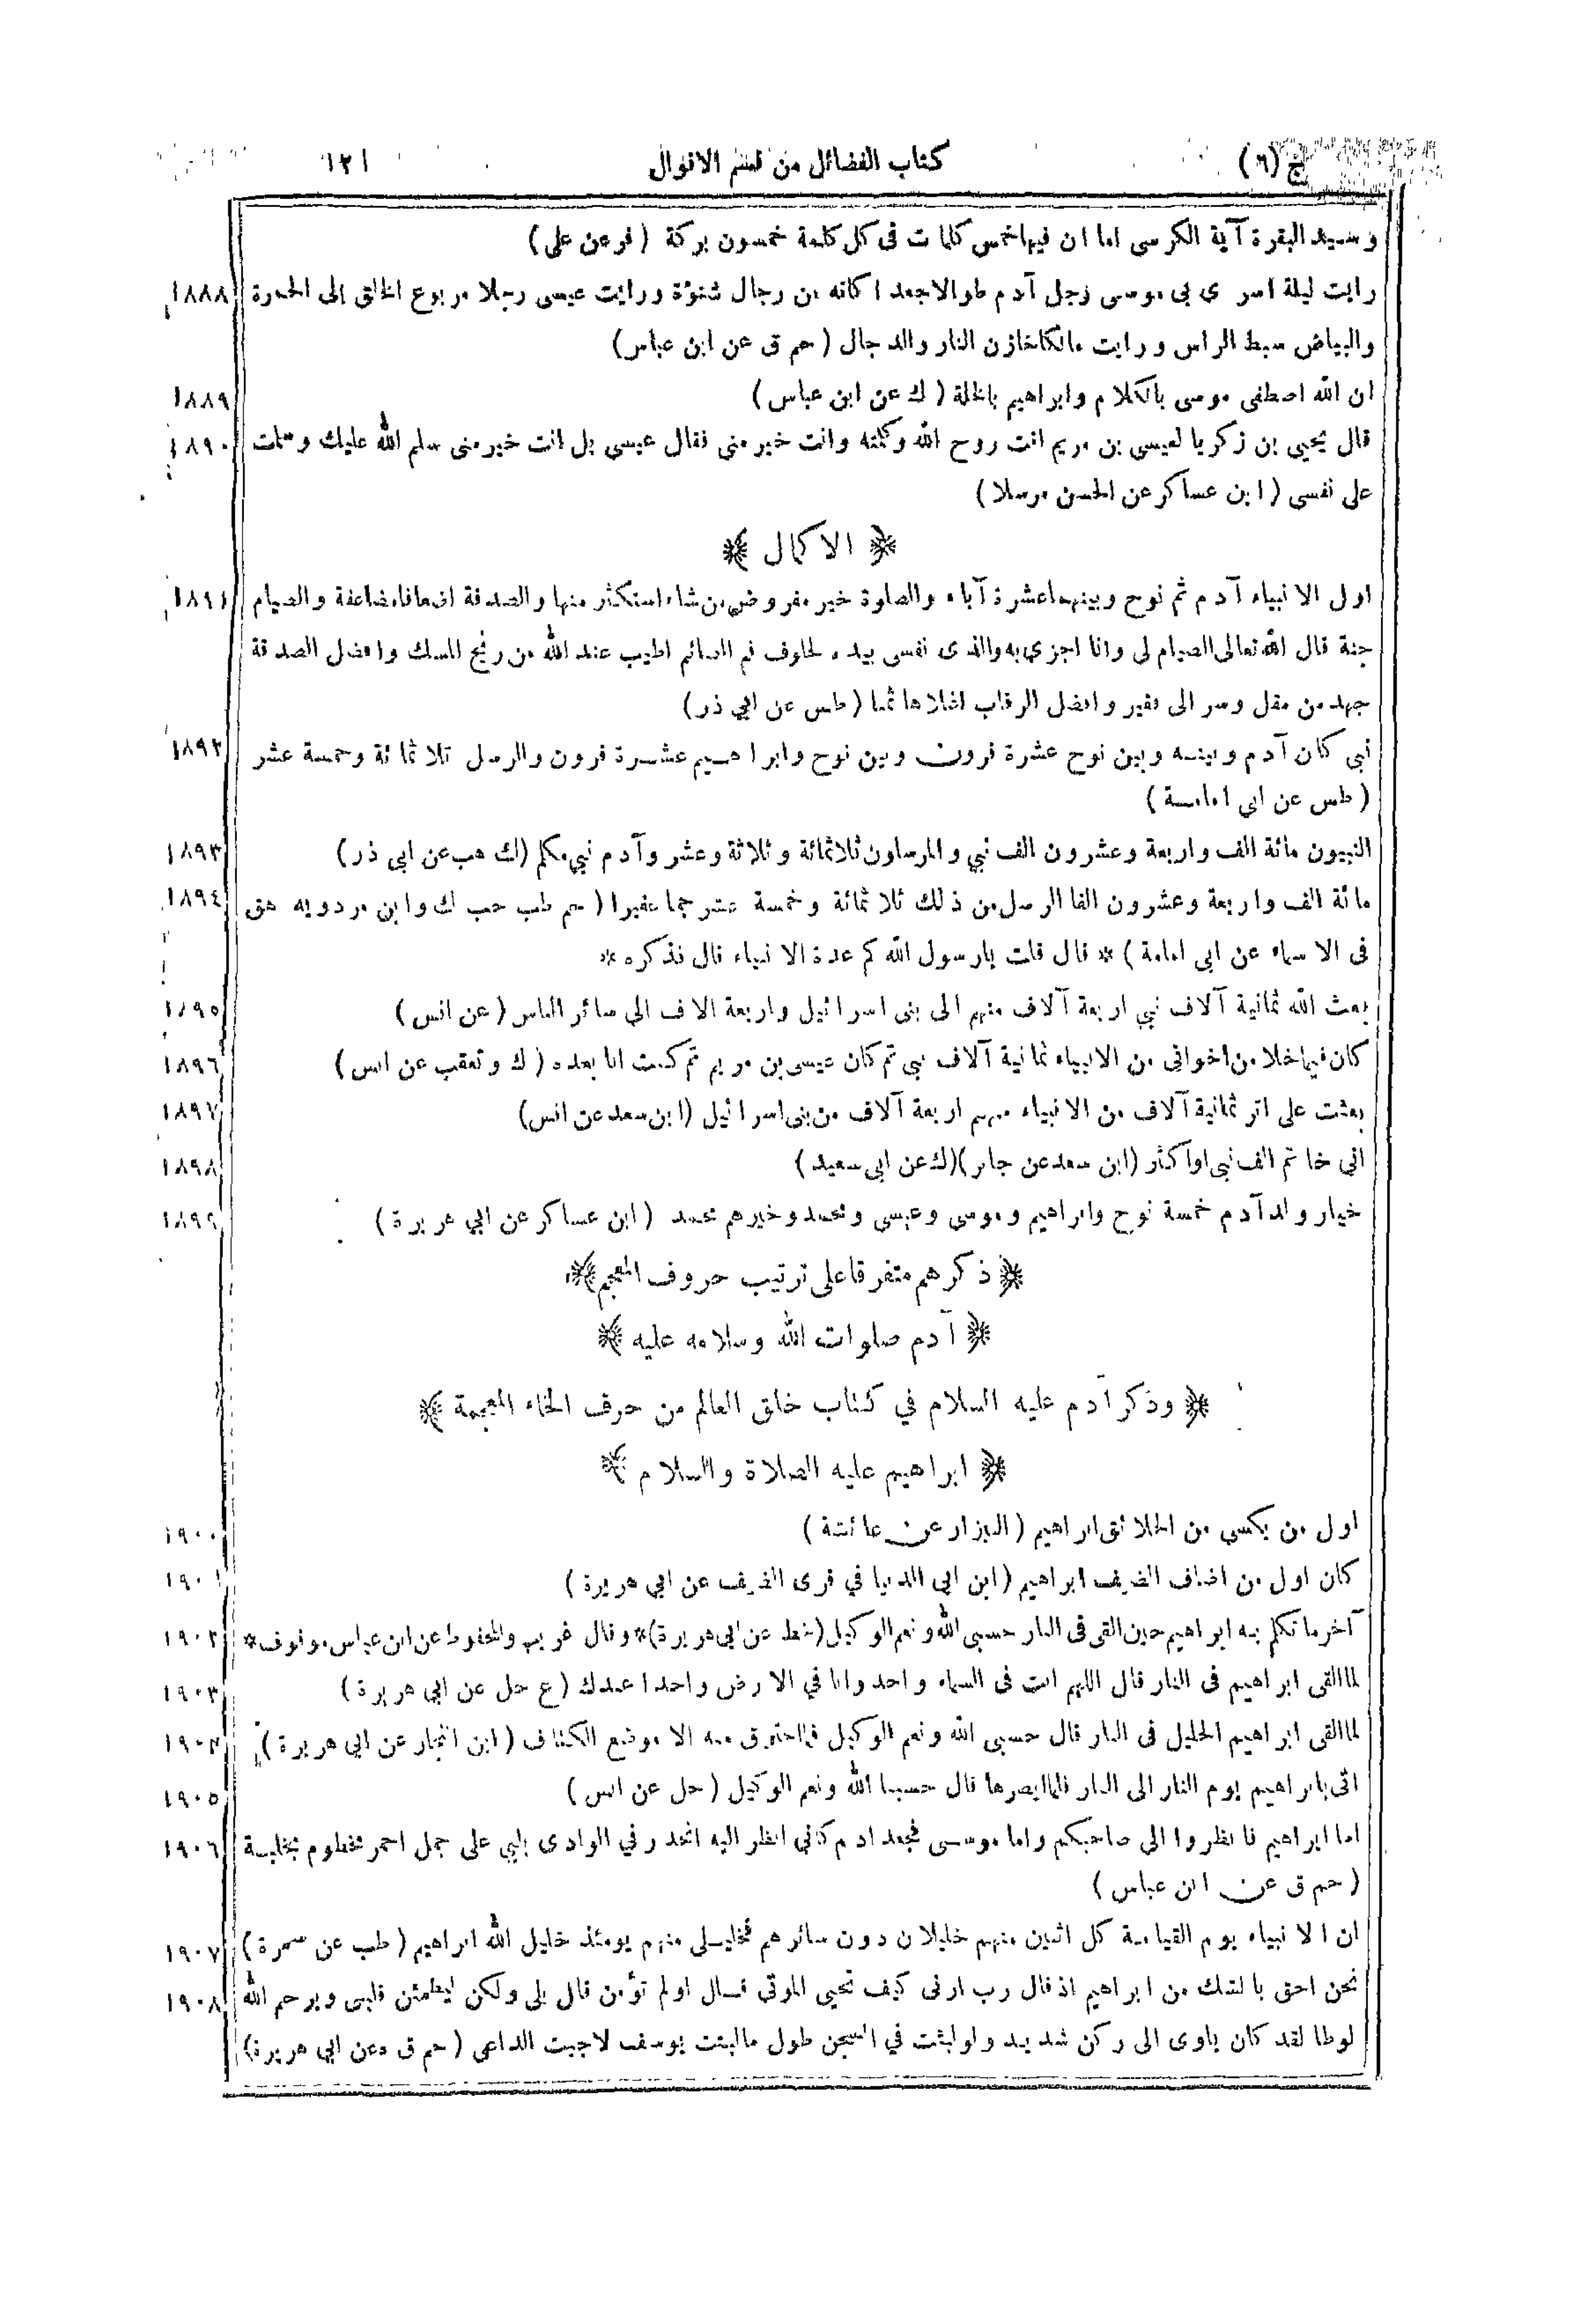 ج (٦) كتاب الفضائل من قسم الاقوال ١٢١
وسيد البقرة آية الكرسى اما ان فيها خمس كلمات فى كل كلمة خمسون بركة (فر عن على)
رايت ليلة اسرى بى موسى رجل آدم طوالا جعدا كانه من رجال شنوٴة ورايت عيسى رجلا مربوع الخلق إلى الحمرة ١٨٨٨
والبياض سبط الراس ورايت مالكا خازن النار والدجال (حم ق عن ابن عباس)
ان الله اصطفى موسى بالكلام وابراهيم بالخلة (ك عن ابن عباس) ١٨٨٩
قال يحيى بن زكريا لعيسى بن مريم انت روح الله وكلمته وانت خير منى فقال عيسى بل انت خير منى سلم الله عليك وسلمت ١٨٩٠
على نفسى (ابن عساكر عن الحسن مرسلا)
الاكمال
اول الانبياء آدم ثم نوح وبينهما عشرة آباء والصلوة خير مفروض من شاء استكثر منها والصدقة اضعافا مضاعفة والصيام ١٨٩١
جنة قال الله تعالى الصيام لى وانا اجزى به والذى نفسى بيده لخلوف فم الصائم اطيب عند الله من ريح المسك وافضل الصدقة
جهد من مقل وسر الى فقير وافضل الرقاب اغلاها ثمنا (طس عن ابي ذر)
نبي كان آدم وبينه وبين نوح عشرة قرون وبين نوح وابراهيم عشرة قرون والرسل ثلاثمائة وخمسة عشر ١٨٩٢
(طس عن ابي امامة)
النبيون مائة الف واربعة وعشرون الف نبي والمرسلون ثلاثمائة وثلاثة وعشر وآدم نبي مكلم (ك هب عن ابى ذر) ١٨٩٣
مائة الف واربعة وعشرون الفا الرسل من ذلك ثلاثمائة وخمسة عشر جما غفيرا (حم طب حب ك وابن مردويه هق ١٨٩٤
فى الاسماء عن ابى امامة) * قال قلت يارسول الله كم عدة الانبياء قال فذكره *
بعث الله ثمانية آلاف نبي اربعة آلاف منهم الى بنى اسرائيل واربعة الاف الى سائر الناس (عن انس) ١٨٩٥
كان فيما خلا من اخوانى من الانبياء ثمانية آلاف نبي ثم كان عيسى بن مريم ثم كنت انا بعده (ك وتعقب عن انس) ١٨٩٦
بعثت على اثر ثمانية آلاف من الانبياء منهم اربعة آلاف من بنى اسرائيل (ابن سعد عن انس) ١٨٩٧
اني خاتم الف نبي او اكثر (ابن سعد عن جابر)(ك عن ابى سعيد) ١٨٩٨
خيار ولد آدم خمسة نوح وابراهيم وموسى وعيسى ومحمد وخيرهم محمد (ابن عساكر عن ابي هريرة) ١٨٩٩
ذكرهم متفرقا على ترتيب حروف المعجم
آدم صلوات الله وسلامه عليه
وذكر آدم عليه السلام في كتاب خلق العالم من حرف الخاء المعجمة
ابراهيم عليه الصلاة والسلام
اول من يكسى من الخلائق ابراهيم (البزار عن عائشة) ١٩٠٠
كان اول من اضاف الضيف ابراهيم (ابن ابى الدنيا في قرى الضيف عن ابي هريرة) ١٩٠١
آخر ما تكلم به ابراهيم حين القى فى النار حسبى الله ونعم الوكيل (خط عن ابى هريرة)* وقال غريب والمحفوظ عن ابن عباس موقوف* ١٩٠٢
لما القى ابراهيم فى النار قال اللهم انت فى السماء واحد وانا في الارض واحد اعبدك (ع حل عن ابي هريرة) ١٩٠٣
لما القى ابراهيم الخليل فى النار قال حسبى الله ونعم الوكيل فما احترق منه الا موضع الكتاف (ابن النجار عن ابى هريرة) ١٩٠٤
اتى بابراهيم يوم النار الى النار فلما ابصرها قال حسبنا الله ونعم الوكيل (حل عن انس) ١٩٠٥
اما ابراهيم فانظروا الى صاحبكم واما موسى فجعد ادم كاني انظر اليه انحدر في الوادى يلبي على جمل احمر مخطوم بخلبة ١٩٠٦
(حم ق عن ابن عباس)
ان الانبياء يوم القيامة كل اثنين منهم خليلان دون سائرهم فخليلى منهم يومئذ خليل الله ابراهيم (طب عن سمرة) ١٩٠٧
نحن احق بالشك من ابراهيم اذ قال رب ارنى كيف تحيى الموتى قال اولم تؤمن قال بلى ولكن ليطمئن قلبى ويرحم الله ١٩٠٨
لوطا لقد كان ياوى الى ركن شديد ولو لبثت في السجن طول ما لبثت يوسف لاجبت الداعى (حم ق ه عن ابي هريرة)